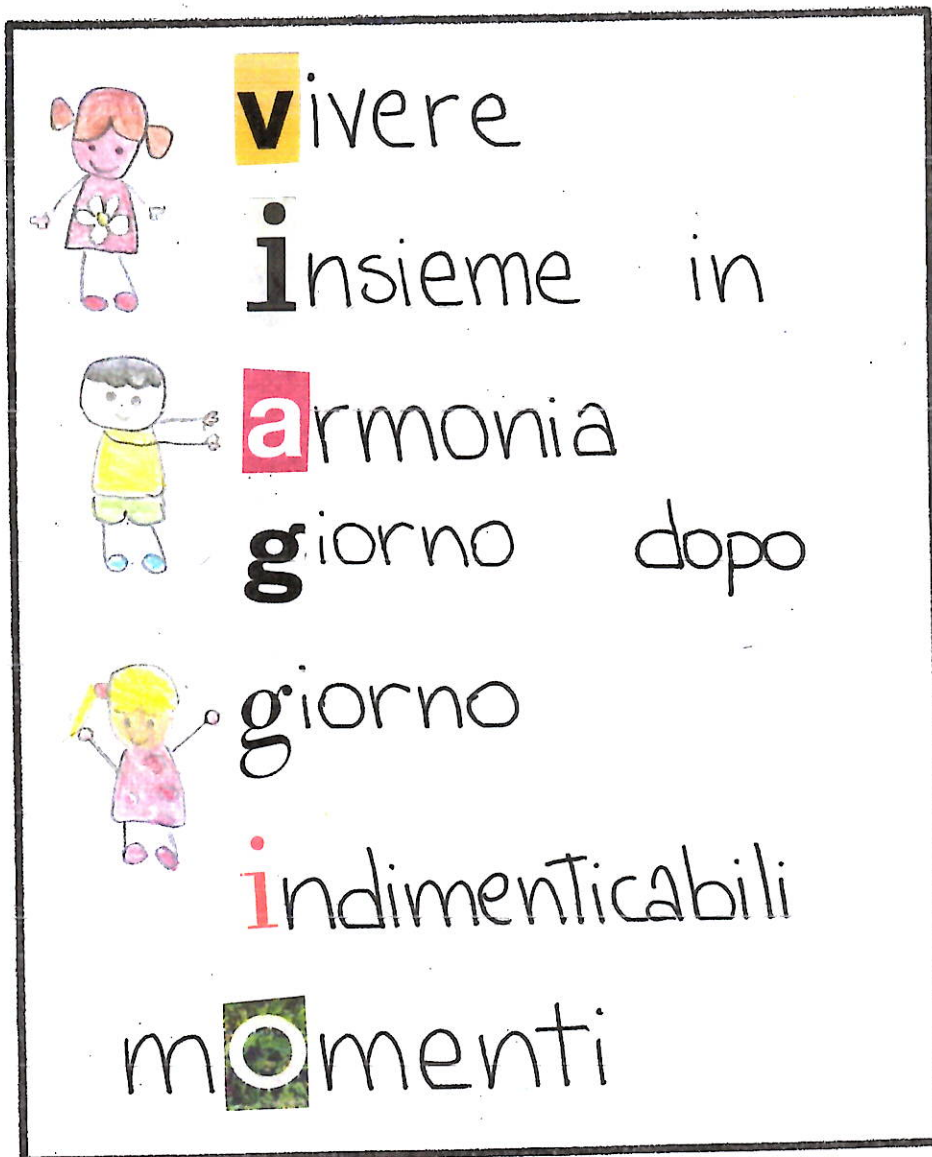 vivere
insieme in
armonia
giorno dopo
giorno
indimenticabili
momenti